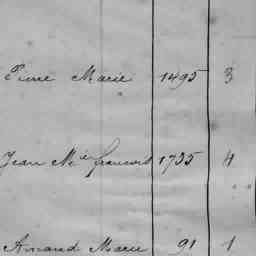 Pierre Marie 1495 3
Jean Mie francois 1735 4
Amand Marie 91 1